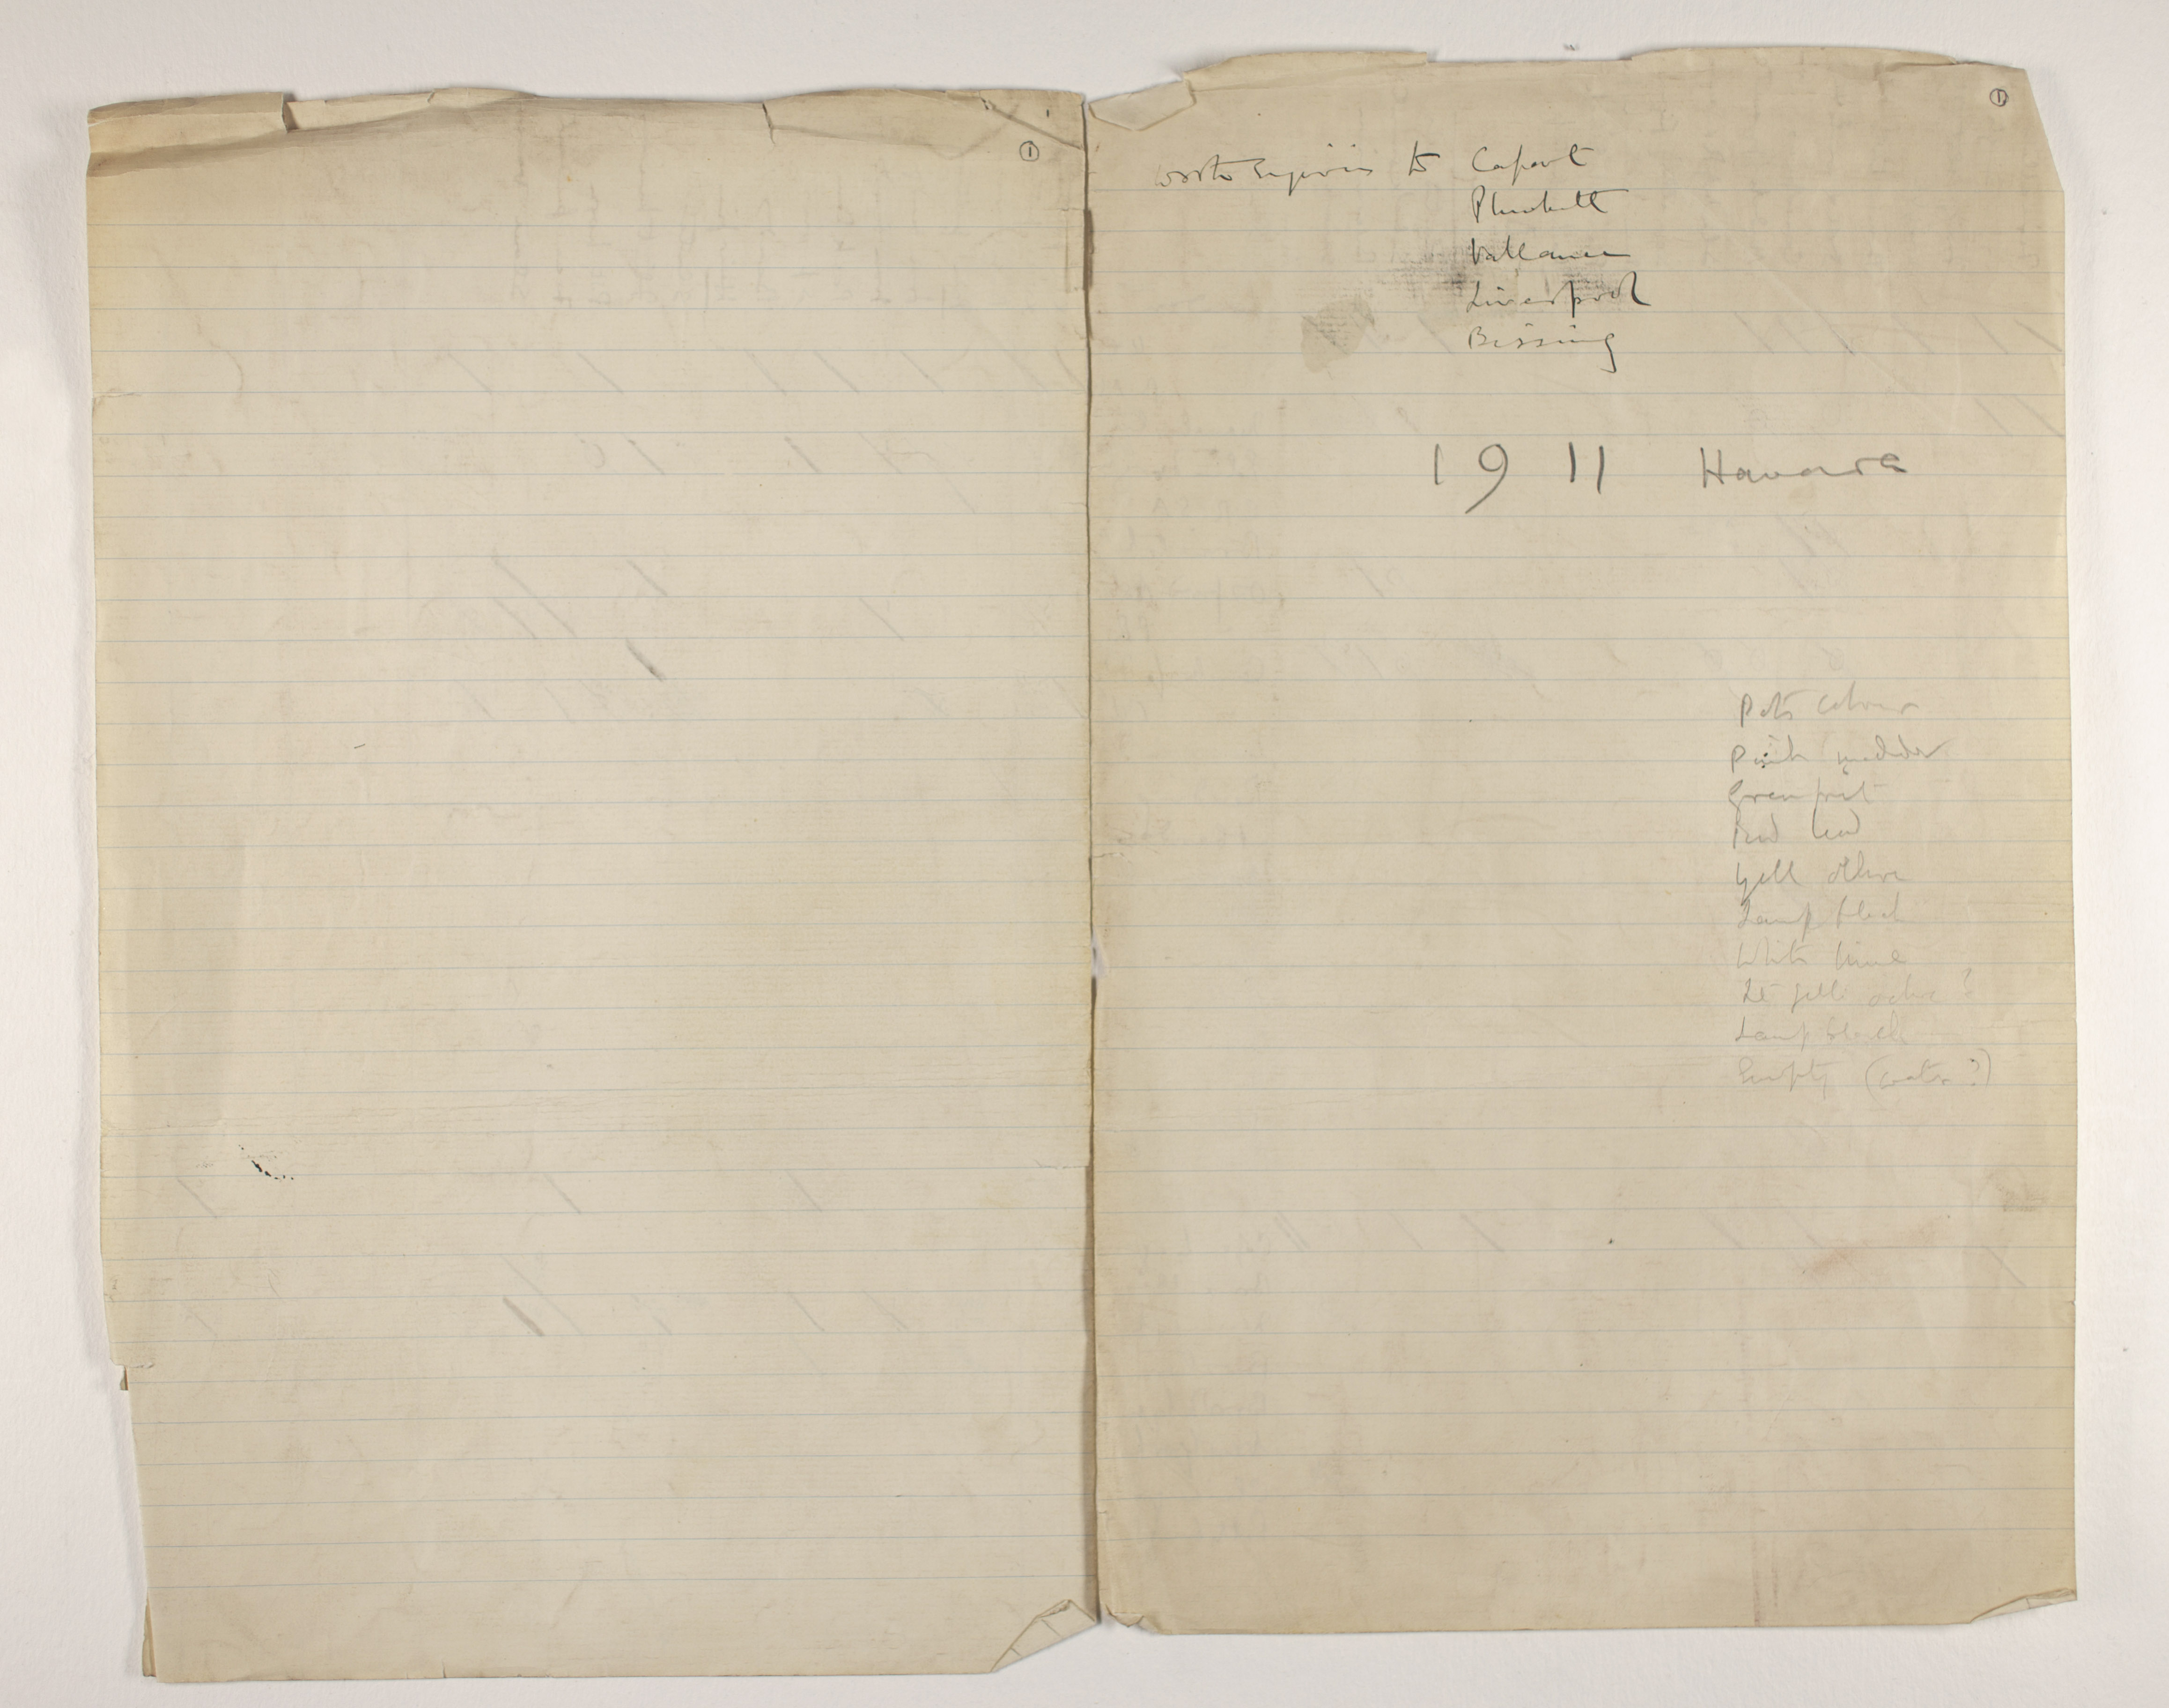 ①
①
to Capart
Plunkett
Vallance
Liverpool
Bissing
1911 Hawara
Pots colour
Pink madder
Green frit
Red lead
Yell ochre
Lamp black
White lime
Lt yell ochre ?
Lamp black
Empty (water ?)